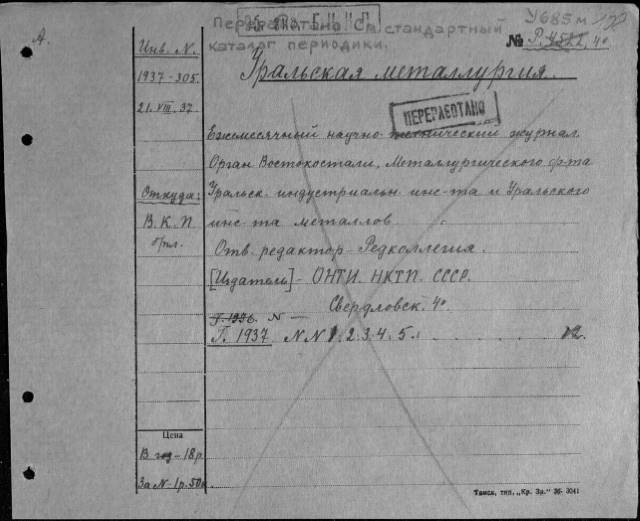 Переработано См. стандартный
каталог периодики.
У685м
№ 4°
А.
Инв. N.
1937-305.
21. VIII. 37
Откуда:
В. К. П
Уральская металлургия.
ПЕРЕРАБОТАНО
Ежемесячный научно-технический журнал.
Орган Востокостали, Металлургического ф-та
Уральск. индустриальн. инс-та и Уральского
инс-та металлов.
Отв. редактор - Редколлегия.
[Издатель] - ОНТИ. НКТП. СССР.
Свердловск. 4°
Г. 1936. N —
Г. 1937 N N 1. 2. 3. 4. 5. 12.
Цена
В год - 18 р.
За N - 1 р. 50к.
Томск, тип. „Кр. Зн." 36- 3041